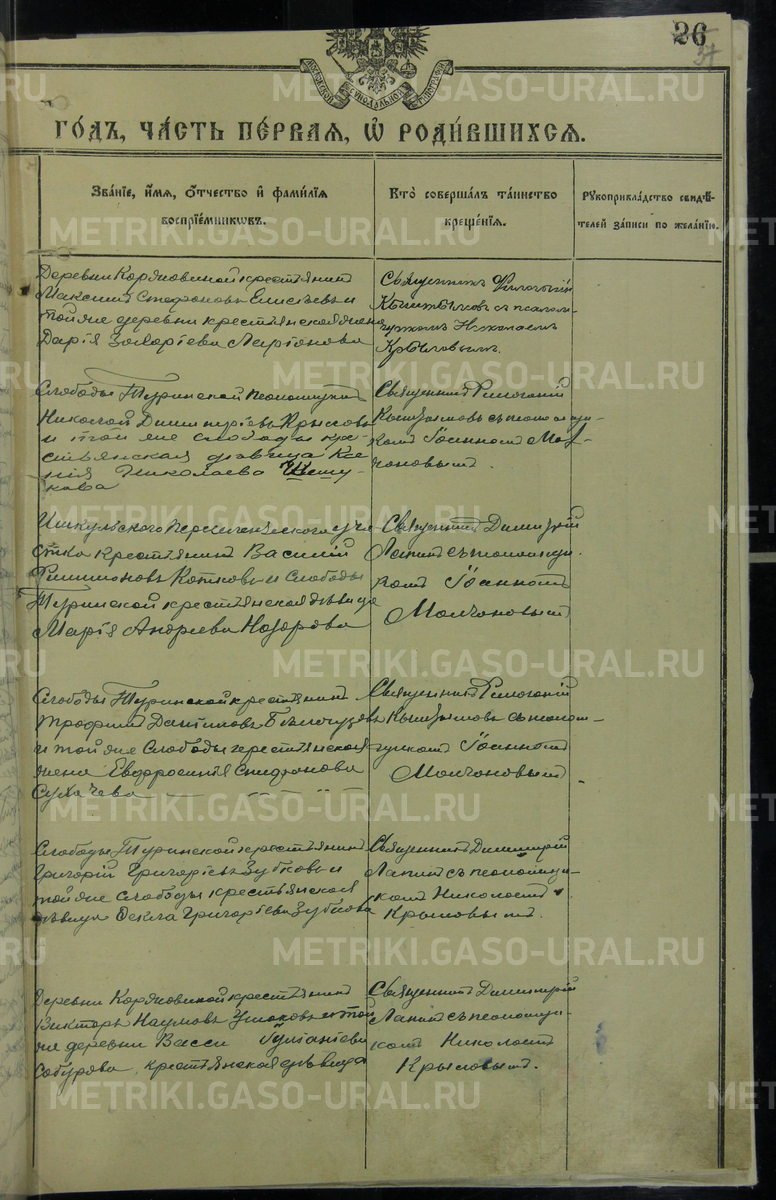 26
37
METRIKI.GASO-URAL.RU
МОСКОВСКОЙ СѴНОДАЛЬНОЙ ТИПОГРАФІИ
го́дъ, ча́сть пе́рваѧ, ѡ҆ роди́вшихсѧ.
Зва́нїе, и҆́мѧ, ѻ҆́тчество и҆ фами́лїѧ
воспрїе́мникѡвъ.
Кто̀ соверша́лъ та́инство
креще́нїѧ.
Рꙋкоприкла́дство свидѣ́-
телей за́писи по жела́нїю.
Деревни Коряковиной крестьянинъ
Максимъ Стефановъ Елисѣевъ и
той же деревни крестьянская жена
Дарія Захаріева Ларіонова
Священникъ Филогоній
съ псалом-
щикомъ Николаемъ
Крыловымъ.
Слободы Туринской псаломщикъ
Николай Димитріевъ Крыловъ
и той же слободы кре-
стьянская дѣвица Ксе-
нія Николаева Шешу-
кова
Священникъ Филогоній
съ псаломщи-
комъ Іоанномъ Мол-
чановымъ.
Ишкульскаго переселенческаго уча
стка крестьянинъ Василій
Филимоновъ Котковъ и Слободы
Туринской крестьянская дѣвица
Марія Андреева Назарова
Священникъ Димитрій
Лапинъ съ псаломщи-
комъ Іоанномъ
Молчановымъ
Слободы Туринской крестьянинъ
Трофимъ Даниловъ
и той же Слободы крестьянская
жена Евфросинія Спиридонова
Сухачева
Священникъ Филогоній
съ псалом-
щикомъ Іоанномъ
Молчановымъ
Слободы Туринской крестьянинъ
Григорій Григорьевъ Зубковъ и
той же слободы крестьянская
дѣвица Ѳекла Григорьева Зубкова
Священникъ Димитрій
Лапинъ съ псаломщи-
комъ Николаемъ
Крыловымъ.
Деревни Коряковиной крестьянинъ
Викторъ Наумовъ Ушаковъ и той
же деревни Васса
Сабурова, крестьянская дѣвица
Священникъ Димитрій
Лапинъ съ псаломщи-
комъ Николаемъ
Крыловымъ.